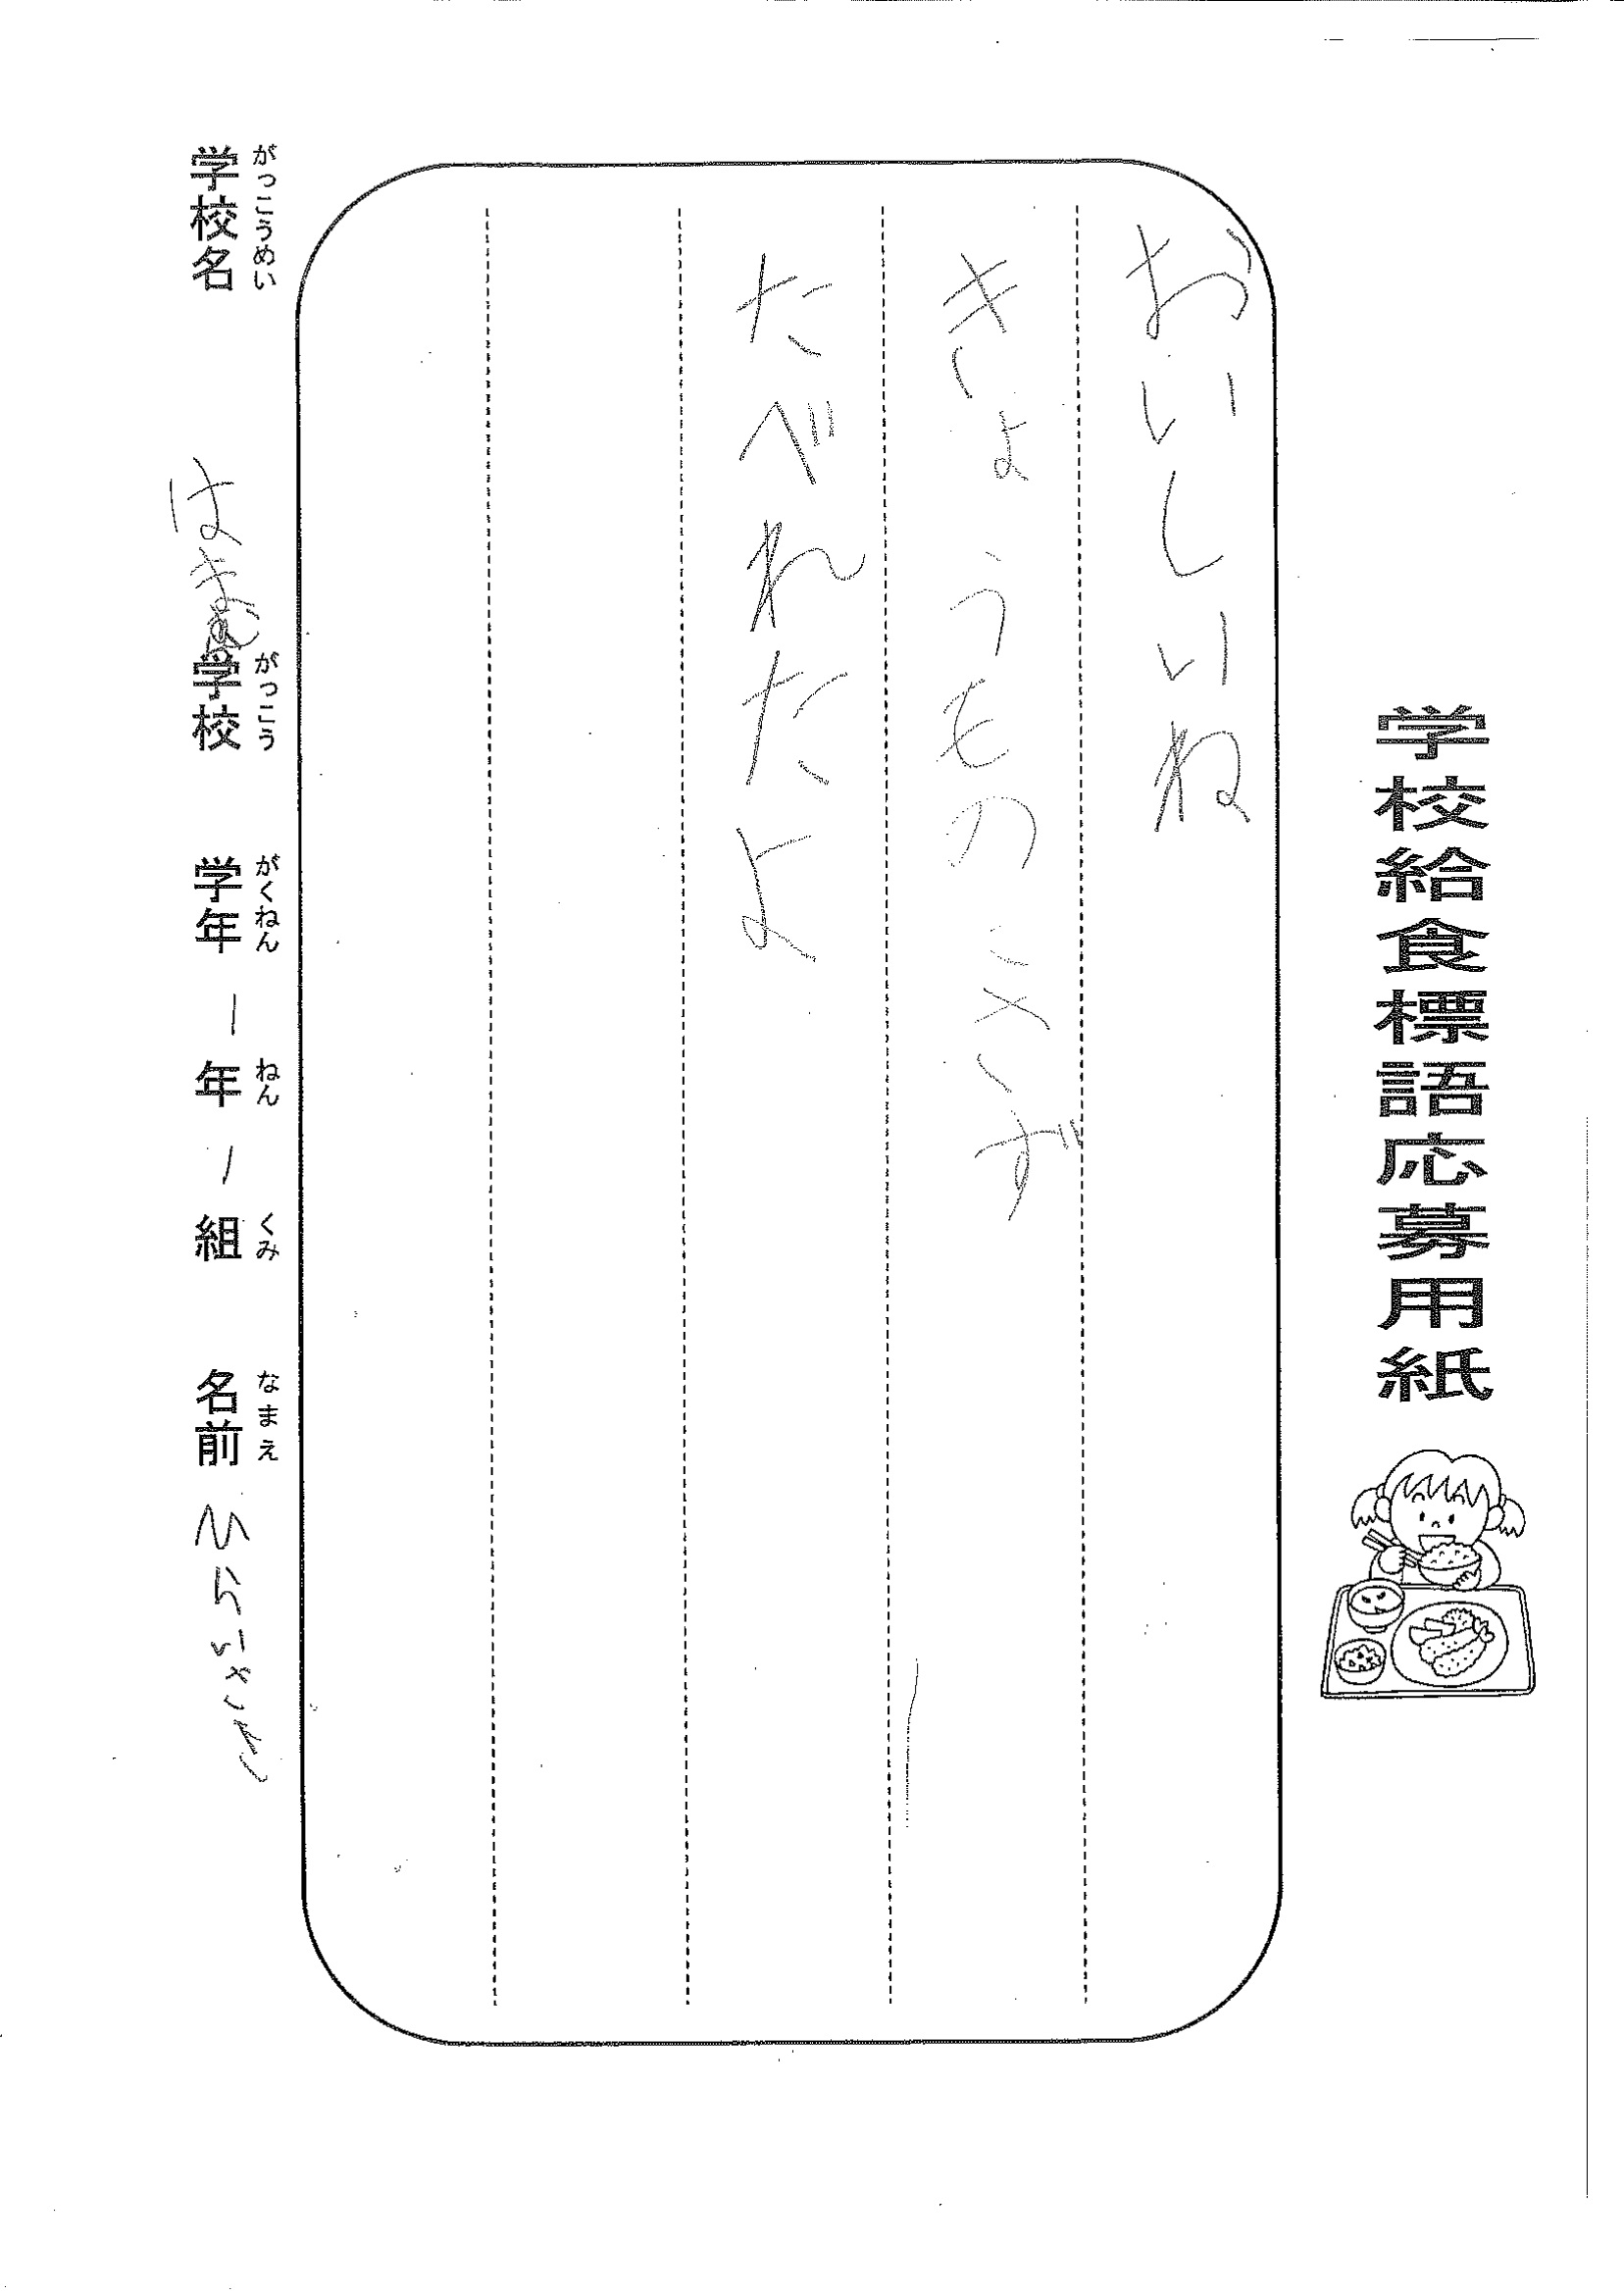 学校給食標語応募用紙
おいしいね
きょうものこさず
たべれたよ
がっこうめい がっこう がくねん ねん くみ なまえ
学校名 学校 学年 1 年 1 組 名前